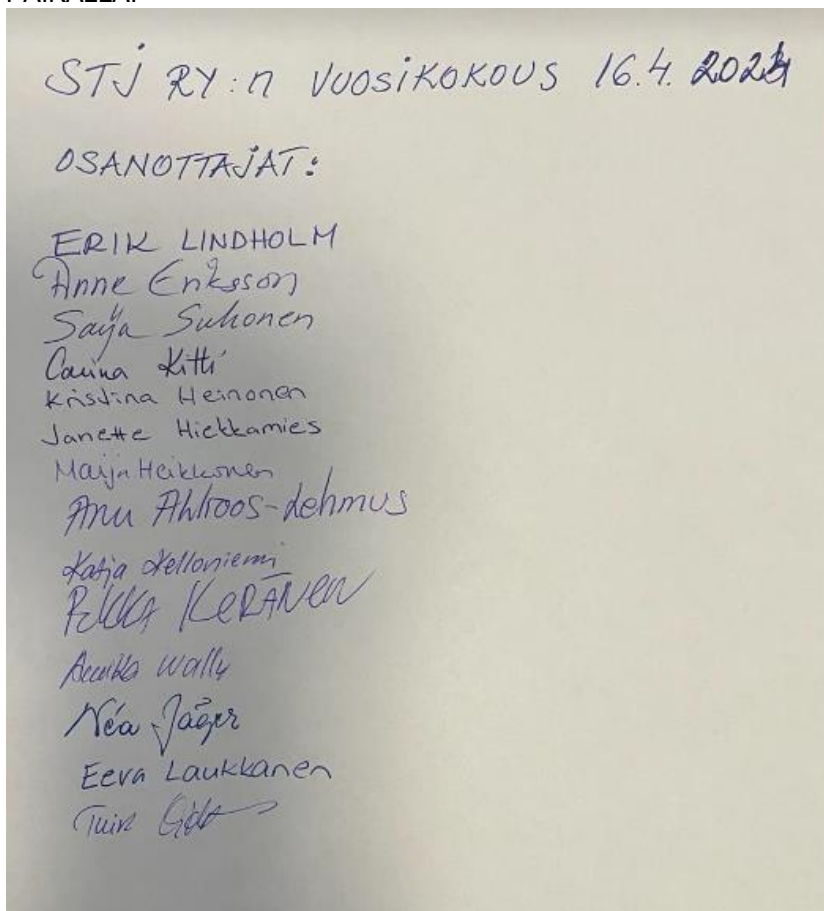 STJ RY:n VUOSIKOKOUS 16.4. 2024
OSANOTTAJAT:
ERIK LINDHOLM
Anne Eriksson
Saija Suhonen
Carina Kitti
Kristina Heinonen
Janette Hiekkamies
Maija Heikkonen
Anu Ahlroos-Lehmus
Katja Kelloniemi
Pekka KERÄNEN
Annika Wally
Néa Jäger
Eeva Laukkanen